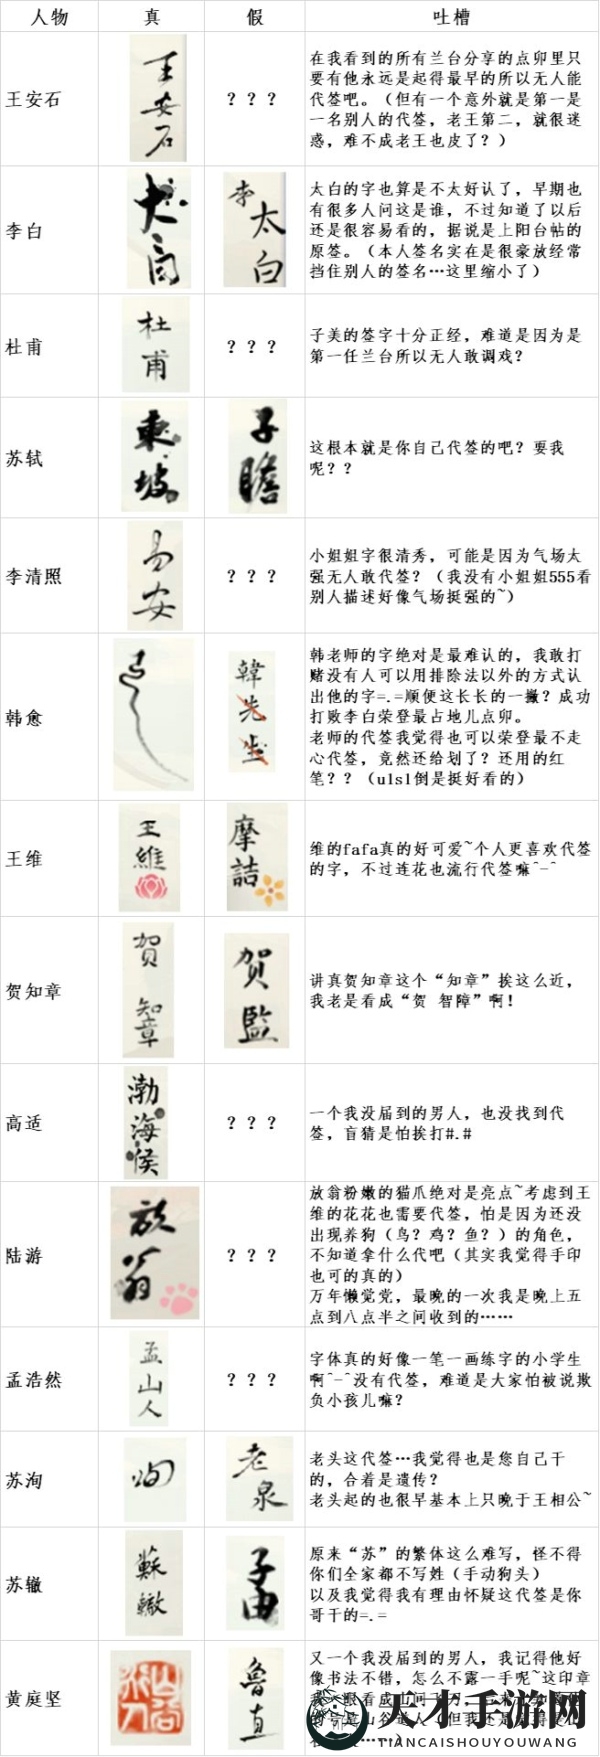 人物 真 假 吐槽
王安石
王安石
？？？
在我看到的所有兰台分享的点卯里只
要有他永远是起得最早的所以无人能
代签吧。（但有一个意外就是第一是
一名别人的代签，老王第二，就很迷
惑，难不成老王也皮了？）
李白
太白
李太白
太白的字也算是不太好认了，早期也
有很多人问这是谁，不过知道了以后
还是很容易看的，据说是上阳台帖的
原签。（本人签名实在是很豪放经常
挡住别人的签名…这里缩小了）
杜甫
杜甫
？？？
子美的签字十分正经，难道是因为是
第一任兰台所以无人敢调戏？
苏轼
東坡
子瞻
这根本就是你自己代签的吧？要我
呢？？
李清照
易安
？？？
小姐姐字很清秀，可能是因为气场太
强无人敢代签？（我没有小姐姐555看
别人描述好像气场挺强的~）
韩愈
韓先生
韩老师的字绝对是最难认的，我敢打
赌没有人可以用排除法以外的方式认
出他的字=.=顺便这长长的一撇？成功
打败李白荣登最占地儿点卯。
老师的代签我觉得也可以荣登最不走
心代签，竟然还给划了？还用的红
笔？？（ulsl倒是挺好看的）
王维
王維
摩詰
维的fafa真的好可爱~个人更喜欢代签
的字，不过连花也流行代签嘛^-^
贺知章
贺知章
贺監
讲真贺知章这个“知章”挨这么近，
我老是看成“贺 智障”啊！
高适
渤海侯
？？？
一个我没届到的男人，也没找到代
签，盲猜是怕挨打#.#
陆游
放翁
？？？
放翁粉嫩的猫爪绝对是亮点~考虑到王
维的花花也需要代签，怕是因为还没
出现养狗（鸟？鸡？鱼？）的角色，
不知道拿什么代吧（其实我觉得手印
也可的真的）
万年懒觉党，最晚的一次我是晚上五
点到八点半之间收到的……
孟浩然
孟山人
？？？
字体真的好像一笔一画练字的小学生
啊^-^没有代签，难道是大家怕被说欺
负小孩儿嘛？
苏洵
洵
老泉
老头这代签…我觉得也是您自己干
的，合着是遗传？
老头起的也很早基本上只晚于王相公~
苏辙
蘇轍
子由
原来“苏”的繁体这么难写，怪不得
你们全家都不写姓（手动狗头）
以及我觉得我有理由怀疑这代签是你
哥干的=.=
黄庭坚
魯直
又一个我没届到的男人，我记得他好
像书法不错，怎么不露一手呢~这印章
天才手游网
TIANCAISHOUYOUWANG